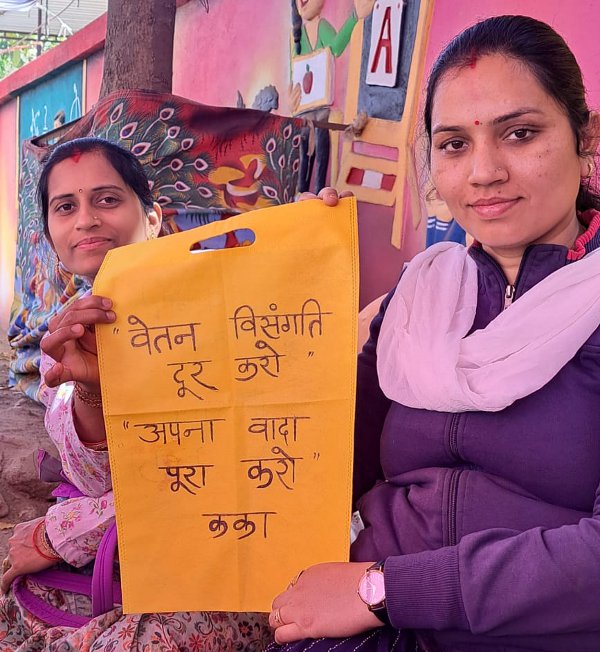 A
"वेतन विसंगति
दूर करो"
"अपना वादा
पूरा करो"
कका